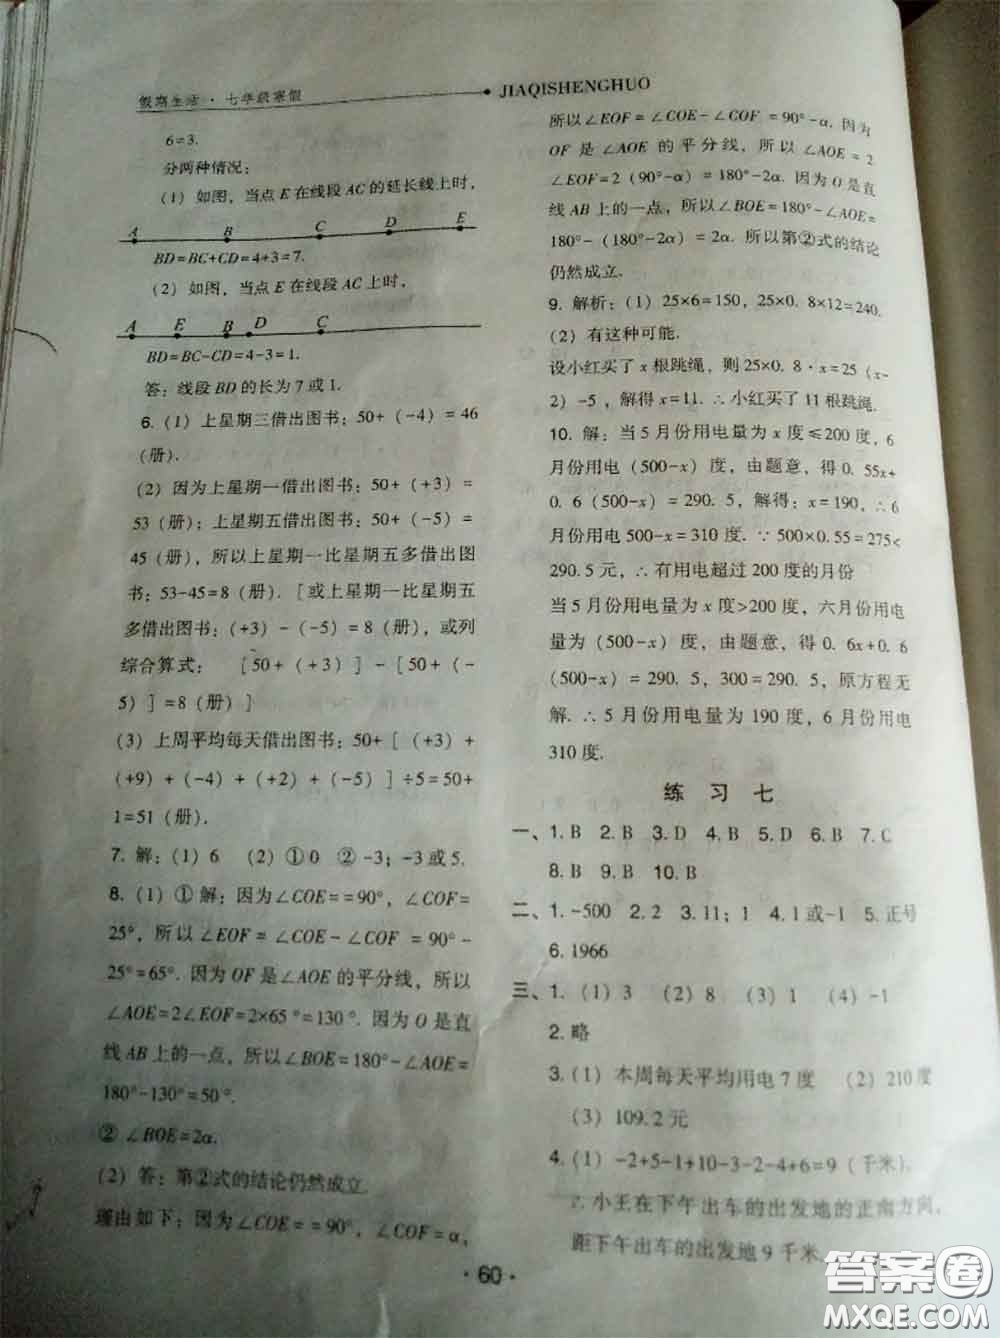 假期生活·七年级寒假
JIAQISHENGHUO
6=3.
分两种情况：
(1) 如图，当点 E 在线段 AC 的延长线上时，
A B C D E
BD=BC+CD=4+3=7.
(2) 如图，当点 E 在线段 AC 上时，
A E B D C
BD=BC-CD=4-3=1.
答：线段 BD 的长为 7 或 1.
6. (1) 上星期三借出图书：50+ (-4) = 46
(册).
(2) 因为上星期一借出图书：50+ (+3) =
53 (册)；上星期五借出图书：50+ (-5) =
45 (册)，所以上星期一比星期五多借出图
书：53-45=8 (册). [或上星期一比星期五
多借出图书：(+3) - (-5) = 8 (册)，或列
综合算式： [50+ (+3) ] - [50+ (-
5) ] =8 (册) ]
(3) 上周平均每天借出图书：50+ [ (+3) +
(+9) + (-4) + (+2) + (-5) ] ÷5=50+
1=51 (册).
7. 解：(1) 6 (2) ①0 ② -3；-3 或 5.
8. (1) ①解：因为∠COE= =90°，∠COF=
25°，所以 ∠EOF = ∠COE - ∠COF = 90°-
25°=65°. 因为 OF 是∠AOE 的平分线，所以
∠AOE=2∠EOF=2×65°=130°. 因为 O 是直
线 AB 上的一点，所以∠BOE=180°-∠AOE=
180°-130°=50°.
② ∠BOE=2α.
(2) 答：第②式的结论仍然成立.
理由如下：因为∠COE= =90°，∠COF=α，
所以∠EOF=∠COE-∠COF =90°-α. 因为
OF 是 ∠AOE 的平分线，所以 ∠AOE = 2
∠EOF=2 (90°-α) =180°-2α. 因为 O 是直
线 AB 上的一点，所以∠BOE=180°-∠AOE=
180°- (180°-2α) =2α. 所以第②式的结论
仍然成立.
9. 解析：(1) 25×6=150，25×0. 8×12=240.
(2) 有这种可能.
设小红买了 x 根跳绳，则 25×0. 8·x=25 (x-
2) -5，解得 x=11. ∴小红买了 11 根跳绳.
10. 解：当 5 月份用电量为 x 度≤200 度，6
月份用电 (500-x) 度，由题意，得 0. 55x+
0. 6 (500-x) = 290. 5，解得：x=190，∴ 6
月份用电 500-x=310 度. ∵ 500×0.55=275<
290.5 元，∴有用电超过 200 度的月份
当 5 月份用电量为 x 度>200 度，六月份用电
量为 (500-x) 度，由题意，得 0. 6x+0. 6
(500-x) =290. 5，300=290. 5，原方程无
解. ∴ 5 月份用电量为 190 度，6 月份用电
310 度.
练 习 七
一、1. B 2. B 3. D 4. B 5. D 6. B 7. C
8. B 9. B 10. B
二、1. -500 2. 2 3. 11；1 4. 1 或-1 5. 正号
6. 1966
三、1. (1) 3 (2) 8 (3) 1 (4) -1
2. 略
3. (1) 本周每天平均用电 7 度 (2) 210 度
(3) 109.2 元
4. (1) -2+5-1+10-3-2-4+6=9 (千米).
小王在下午出车的出发地的正南方向，
距下午出车的出发地 9 千米.
·60·
答案圈
MXQE.COM